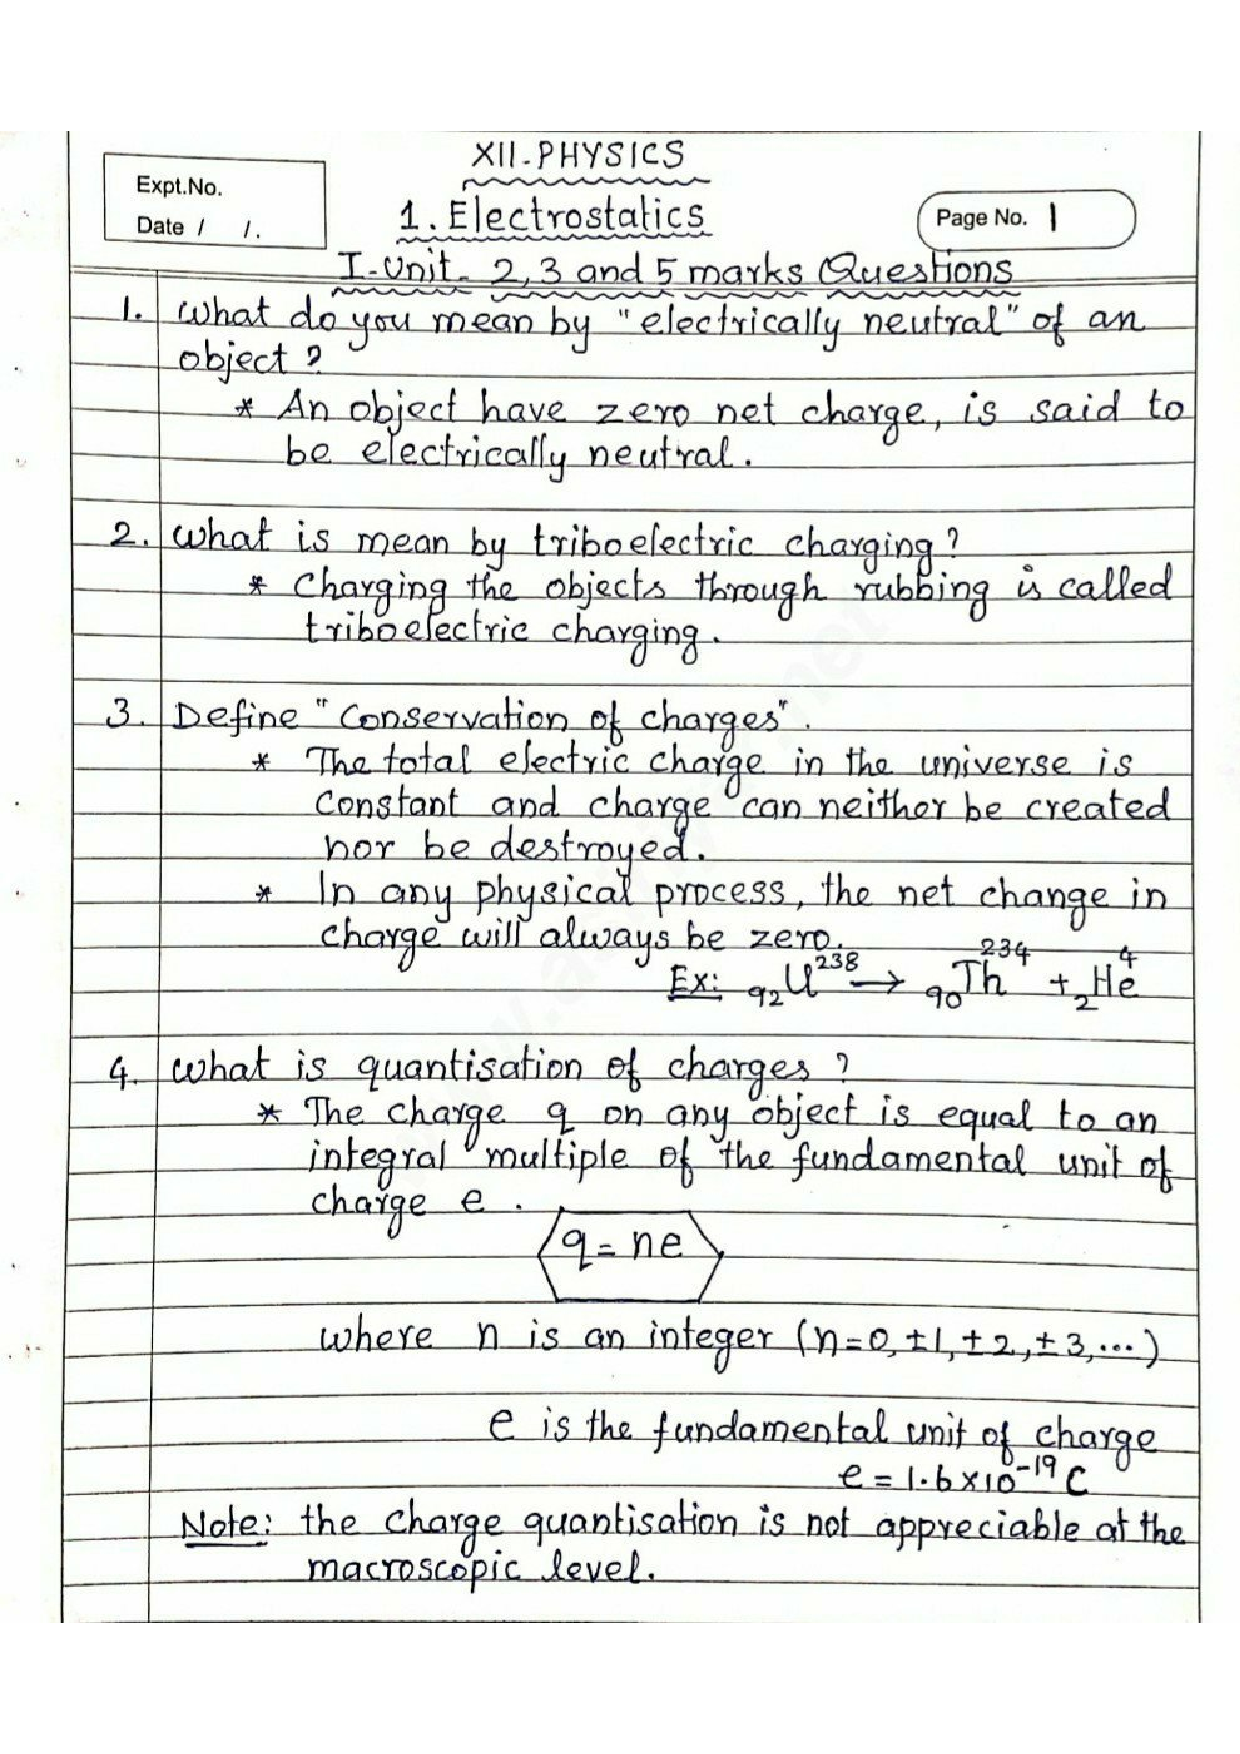 XII-PHYSICS
Expt.No.
Date / /.
1. Electrostatics
Page No. 1
I-Unit- 2,3 and 5 marks Questions
1. What do you mean by "electrically neutral" of an
object?
* An object have zero net charge, is said to
be electrically neutral.
2. What is mean by triboelectric charging?
* Charging the objects through rubbing is called
triboelectric charging.
3. Define "Conservation of charges".
* The total electric charge in the universe is
Constant and charge can neither be created
nor be destroyed.
* In any physical process, the net change in
charge will always be zero.
Ex: ₉₂U²³⁸ → ₉₀Th²³⁴ + ₂He⁴
4. What is quantisation of charges?
* The charge q on any object is equal to an
integral multiple of the fundamental unit of
charge e.
q = ne
where n is an integer (n=0, ±1, ±2, ±3, ...)
e is the fundamental unit of charge
e = 1.6×10⁻¹⁹ C
Note: the charge quantisation is not appreciable at the
macroscopic level.